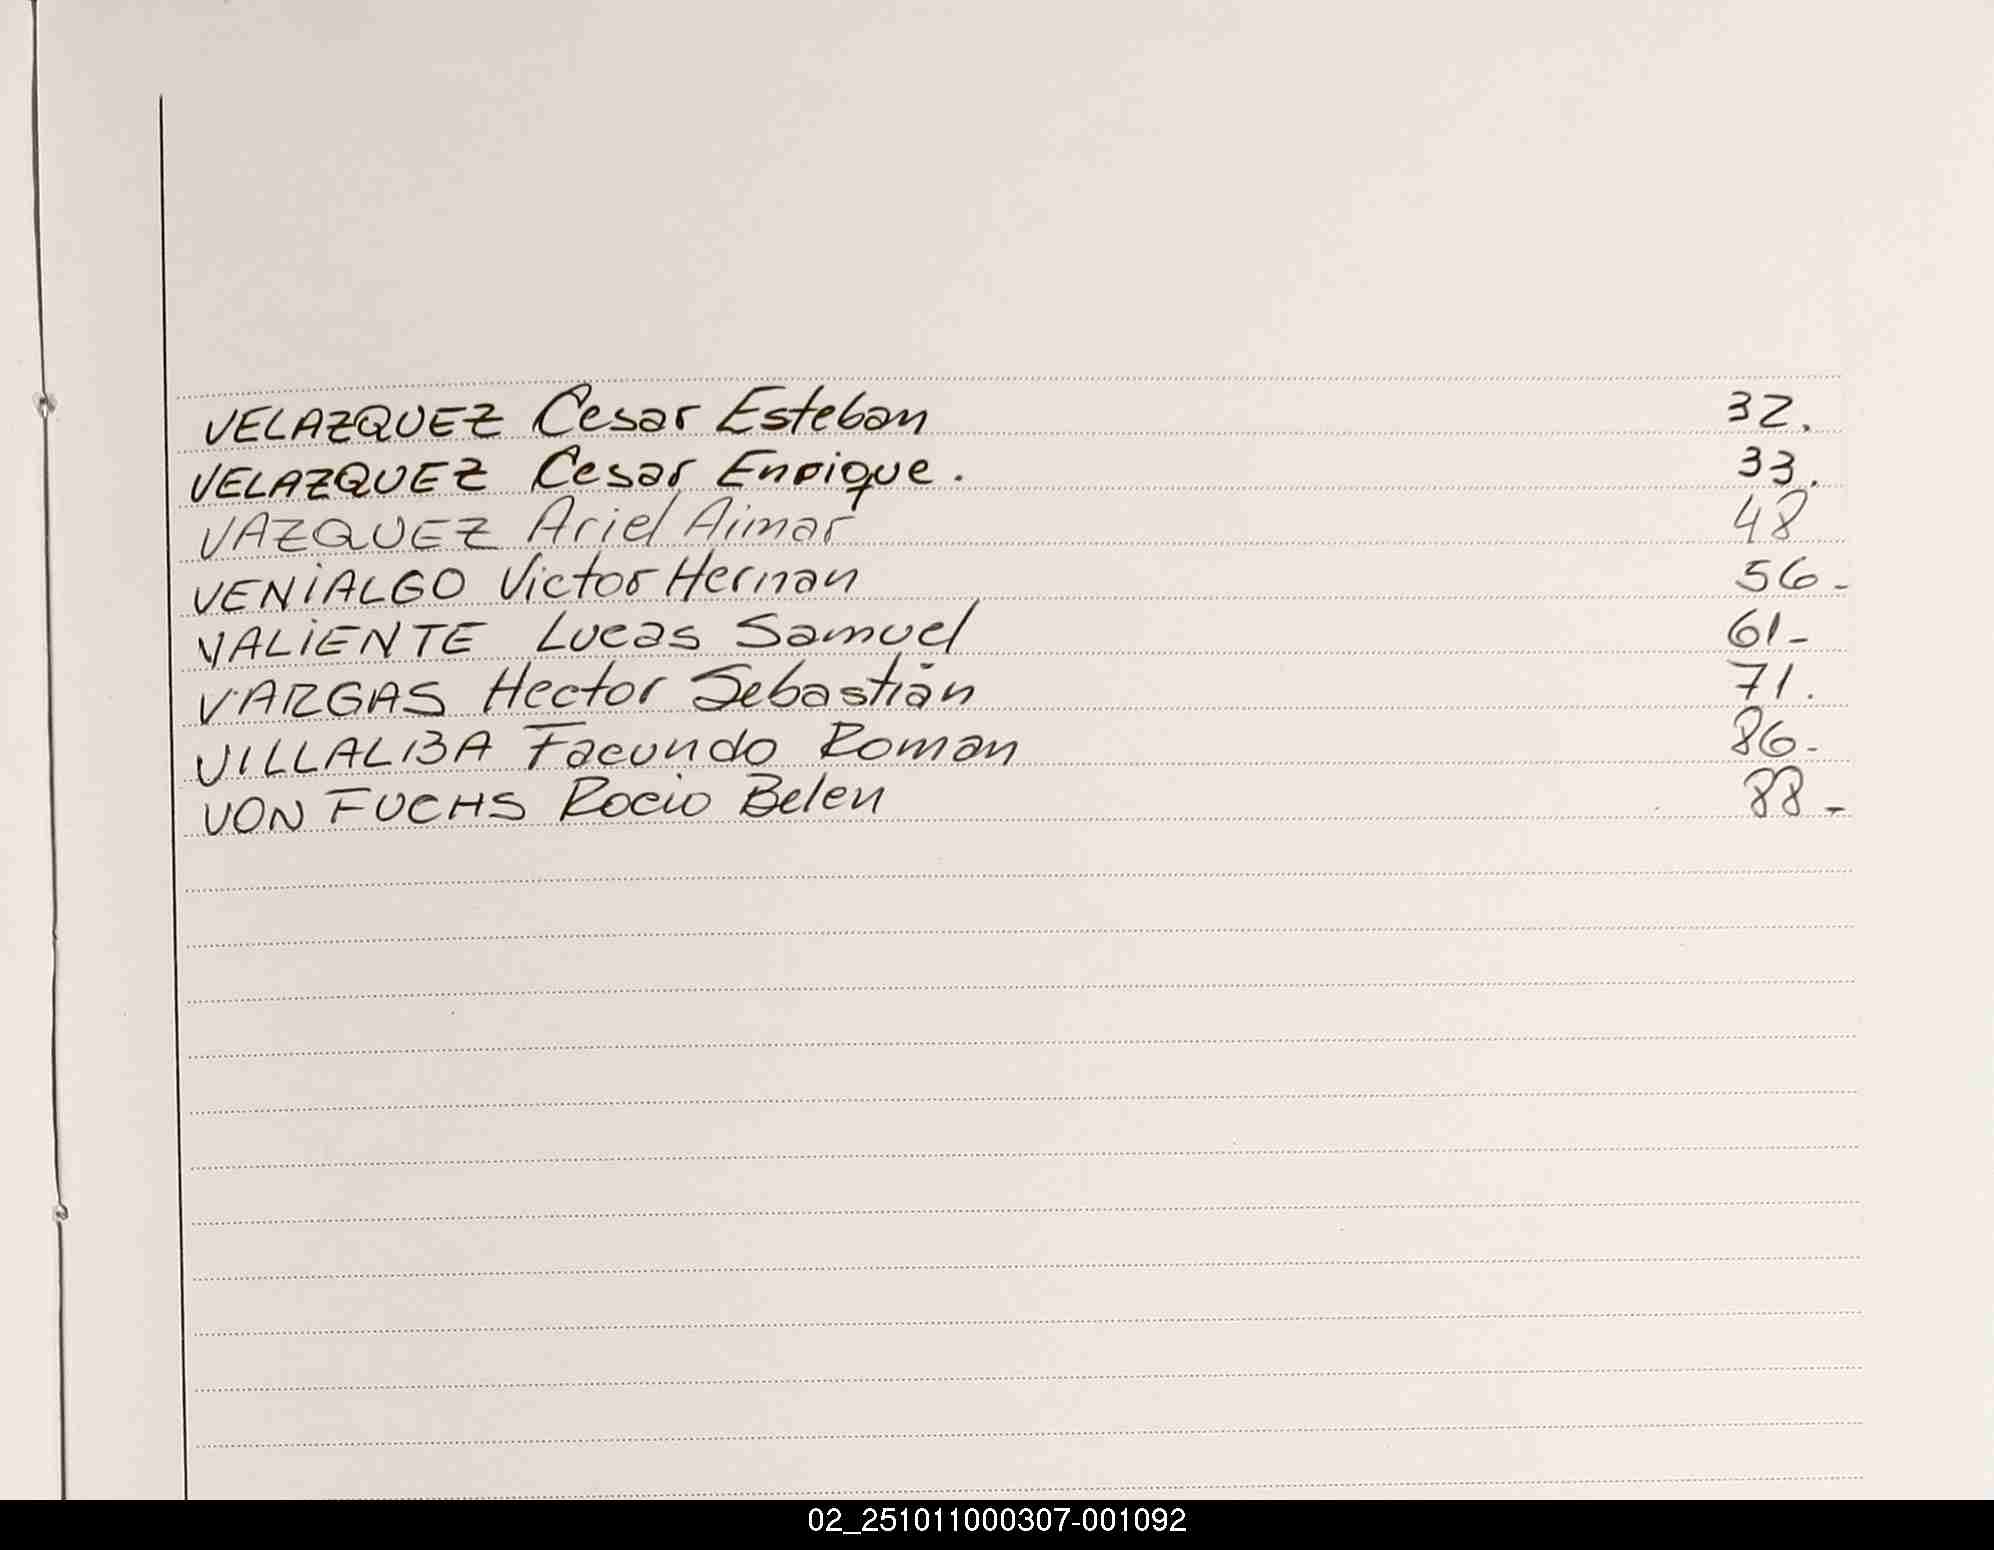 VELAZQUEZ Cesar Esteban 32.
VELAZQUEZ Cesar Enrique. 33.
VAZQUEZ Ariel Aimar 48
VENIALGO Victor Hernan 56-
VALIENTE Lucas Samuel 61-
VARGAS Hector Sebastián 71.
VILLALBA Facundo Roman 86-
VON FUCHS Rocio Belen 88-
02_251011000307-001092